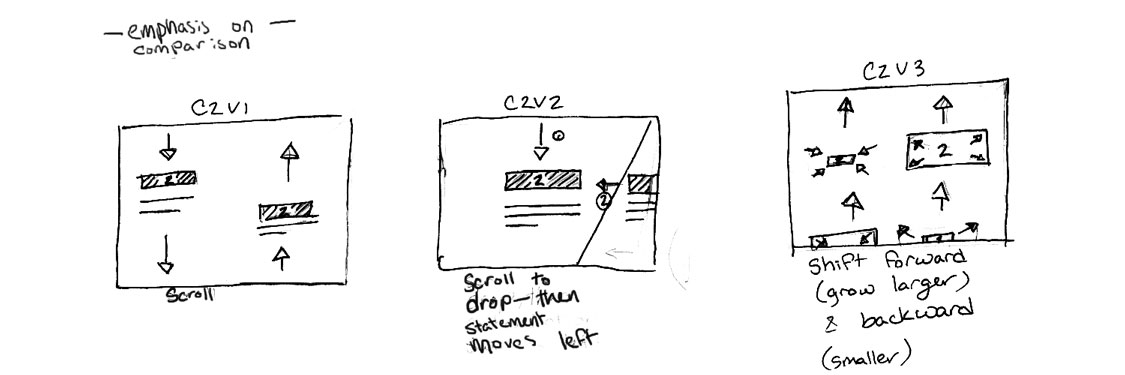 — emphasis on —
comparison
C2V1
2
2
Scroll
C2V2
①
2
②
Scroll to
drop — then
statement
moves left
C2V3
2
shift forward
(grow larger)
& backward
(smaller)